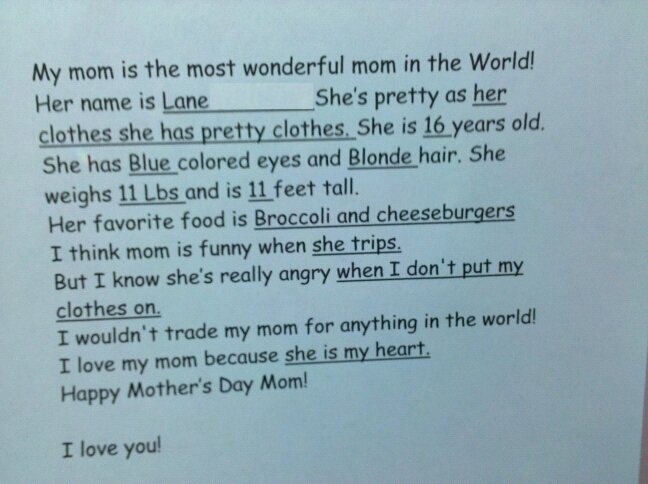 My mom is the most wonderful mom in the World!
Her name is Lane She's pretty as her
clothes she has pretty clothes. She is 16 years old.
She has Blue colored eyes and Blonde hair. She
weighs 11 Lbs and is 11 feet tall.
Her favorite food is Broccoli and cheeseburgers
I think mom is funny when she trips.
But I know she's really angry when I don't put my
clothes on.
I wouldn't trade my mom for anything in the world!
I love my mom because she is my heart.
Happy Mother's Day Mom!
I love you!